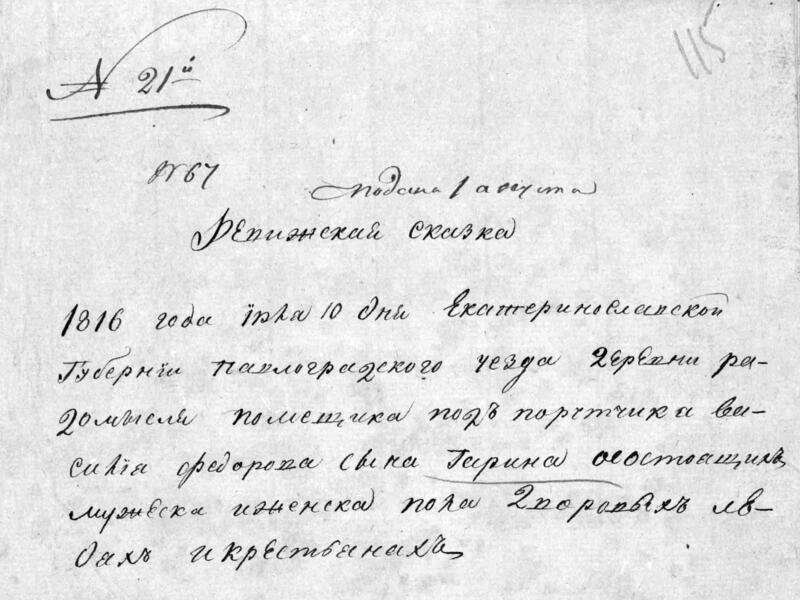 115
№ 21й
№ 67
подана 1 августа
Ревижская сказка
1816 года июля 10 дня Екатеринославской
Губернїи павлоградского уезда деревни ра-
домысля помещика подъ портчика Ва-
силїя федорова сына Гарина осостоящихъ
мужеска иженска пола дворовыхъ лю-
дяхъ икрестьянахъ